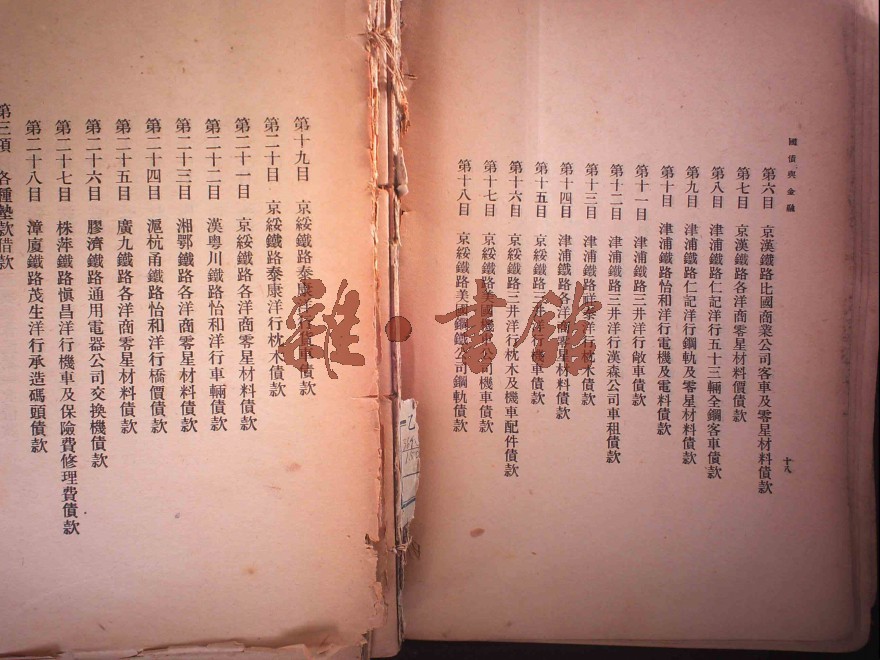 國債與金融
十八
第六目 京漢鐵路比國商業公司客車及零星材料債款
第七目 京漢鐵路各洋商零星材料價債款
第八目 津浦鐵路仁記洋行五十三輛全鋼客車債款
第九目 津浦鐵路仁記洋行鋼軌及零星材料債款
第十目 津浦鐵路怡和洋行電機及電料債款
第十一目 津浦鐵路三井洋行敞車債款
第十二目 津浦鐵路三井洋行漢森公司車租債款
第十三目 津浦鐵路祥泰洋行枕木債款
第十四目 津浦鐵路各洋商零星材料債款
第十五目 京綏鐵路三井洋行機車債款
第十六目 京綏鐵路三井洋行枕木及機車配件債款
第十七目 京綏鐵路美國機車公司機車債款
第十八目 京綏鐵路美國鋼鐵公司鋼軌債款
第十九目 京綏鐵路泰康洋行貨車債款
第二十目 京綏鐵路泰康洋行枕木債款
第二十一目 京綏鐵路各洋商零星材料債款
第二十二目 漢粵川鐵路怡和洋行車輛債款
第二十三目 湘鄂鐵路各洋商零星材料債款
第二十四目 滬杭甬鐵路怡和洋行橋價債款
第二十五目 廣九鐵路各洋商零星材料債款
第二十六目 膠濟鐵路通用電器公司交換機債款
第二十七目 株萍鐵路愼昌洋行機車及保險費修理費債款
第二十八目 漳廈鐵路茂生洋行承造碼頭債款
第三項 各種墊款借款
雜·書館